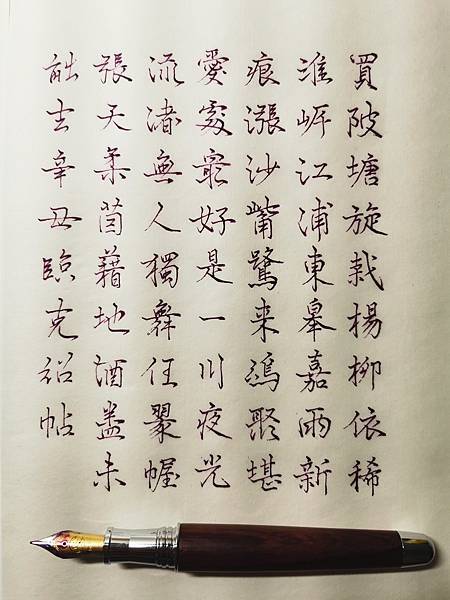 買陂塘旋栽楊柳依稀
淮岸江浦東皋嘉雨新
痕漲沙觜鷺来鴻聚堪
愛處最好是一川夜光
流渚無人獨舞任翠幄
張天柔茵藉地酒盡未
能去辛丑臨克裕帖